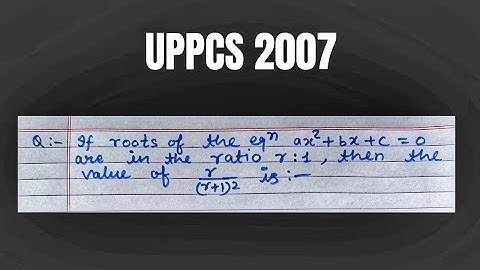 UPPCS 2007
Q:- If roots of the eqⁿ ax²+bx+c=0
are in the ratio r:1, then the
value of r/(r+1)² is:-